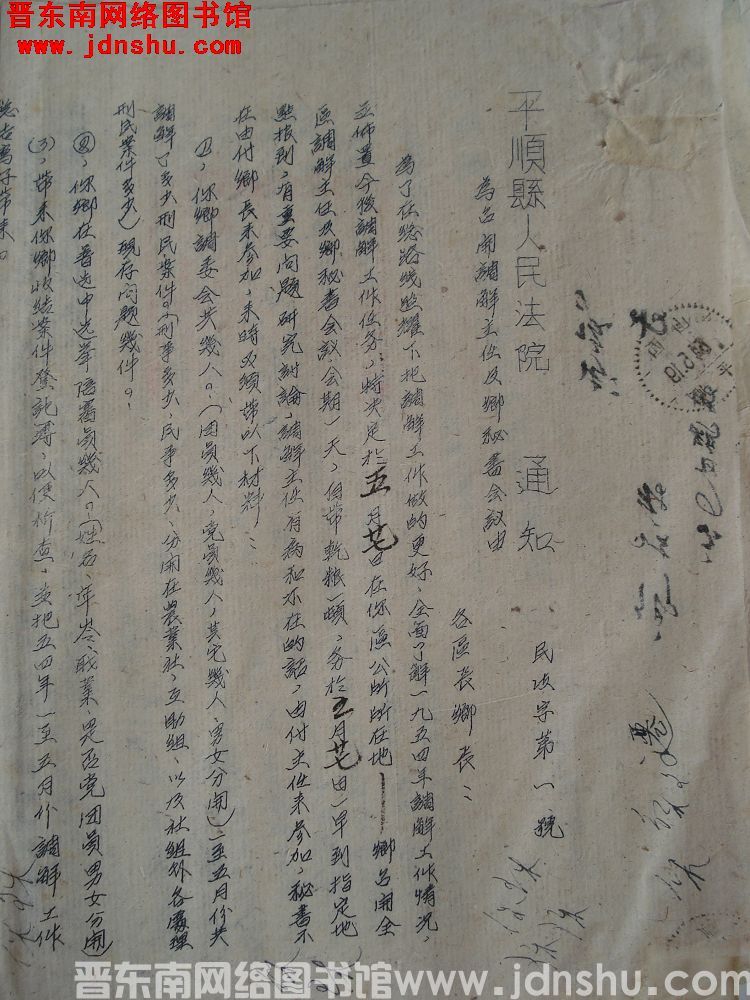 晋东南网络图书馆
www.jdnshu.com
平順縣人民法院 通知
民政字第一號
為召開調解主任及鄉秘書會議由
各區長鄉長：
為了在總路线照耀下把調解工作做的更好，全面了解一九五四年調解工作情况，
立佈置今後調解工作任务，特决定於五月廿日在你區公所所在地 鄉召開全
區調解主任及鄉秘書會議，會期一天，自帶乾粮一頓，务於五月廿 日一早到指定地
點报到，有重要问题研究討論，調解主任有病和不在的話，由付主任来参加，秘書不
在由付鄉長来参加，来時必須帶以下材料：
(1)，你鄉調委会共幾人。(团員幾人，党員幾人，其它幾人，男女分開)一至五月份共
調解了多少刑民案件。(刑事多少，民事多少，分開在農業社，互助組，以及社組外各處理
刑民案件多少)现存问题幾件。
(2)，你鄉在普选中选举陪審員幾人。(姓名、年岺、职業、是否党团員男女分開)
(3)，帶来你鄉收結案件登記薄，以便檢查，並把五四年一至五月份調解工作
總结写好帶来。
晋东南网络图书馆www.jdnshu.com